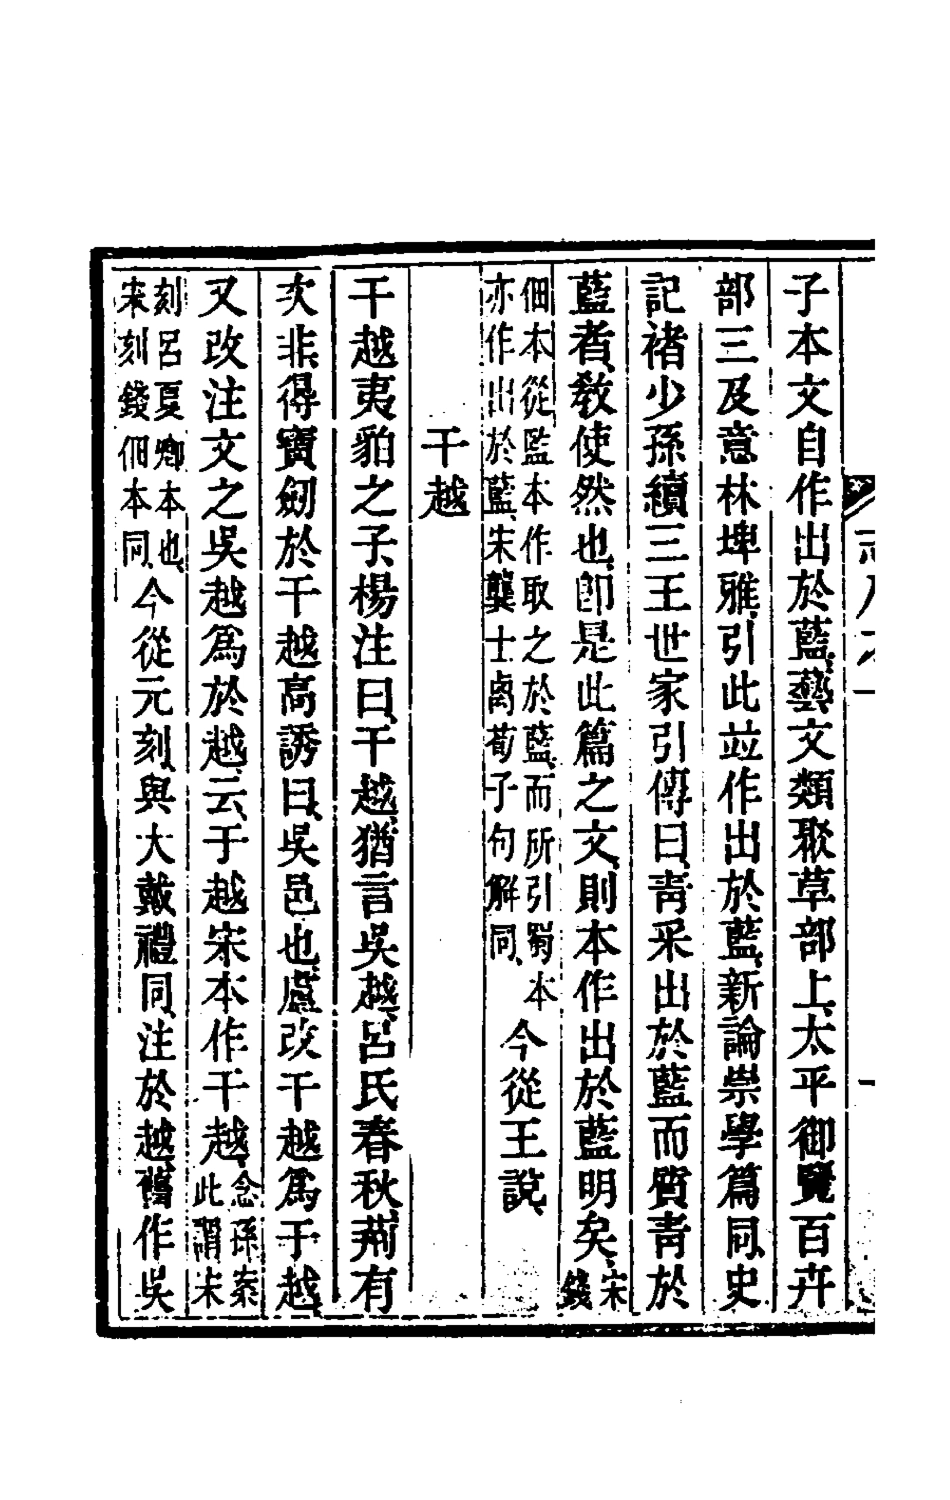 子本文自作出於藍藝文類聚草部上太平御覽百卉
部三及意林埤雅引此竝作出於藍新論崇學篇同史
記褚少孫續三王世家引傳曰青采出於藍而質青於
藍者敎使然也卽是此篇之文則本作出於藍明矣宋錢
佃本從監本作取之於藍而所引蜀本亦作出於藍宋龔士卨荀子句解同今從王說
干越
干越夷貉之子楊注曰干越猶言吳越呂氏春秋荊有
次非得寶劒於干越高誘曰吳邑也盧改干越爲于越
又改注文之吳越爲於越云于越宋本作干越念孫案此謂宋
刻呂夏卿本也宋刻錢佃本同今從元刻與大戴禮同注於越舊作吳